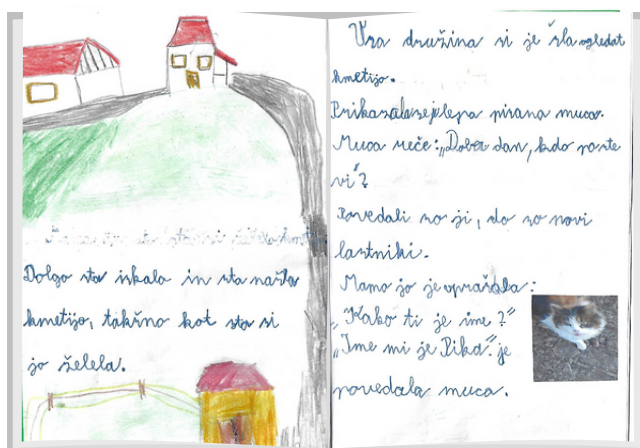 Dolgo sta iskala in sta našla
kmetijo, takšno kot sta si
jo želela.
Vsa družina si je šla ogledat
kmetijo.
Prikazala se je lepa pisana muca.
Muca reče: „Dober dan, kdo pa ste
vi"?
Povedali so ji, da so novi
lastniki.
Mama jo je vprašala:
„Kako ti je ime?"
„Ime mi je Pika." je
povedala muca.